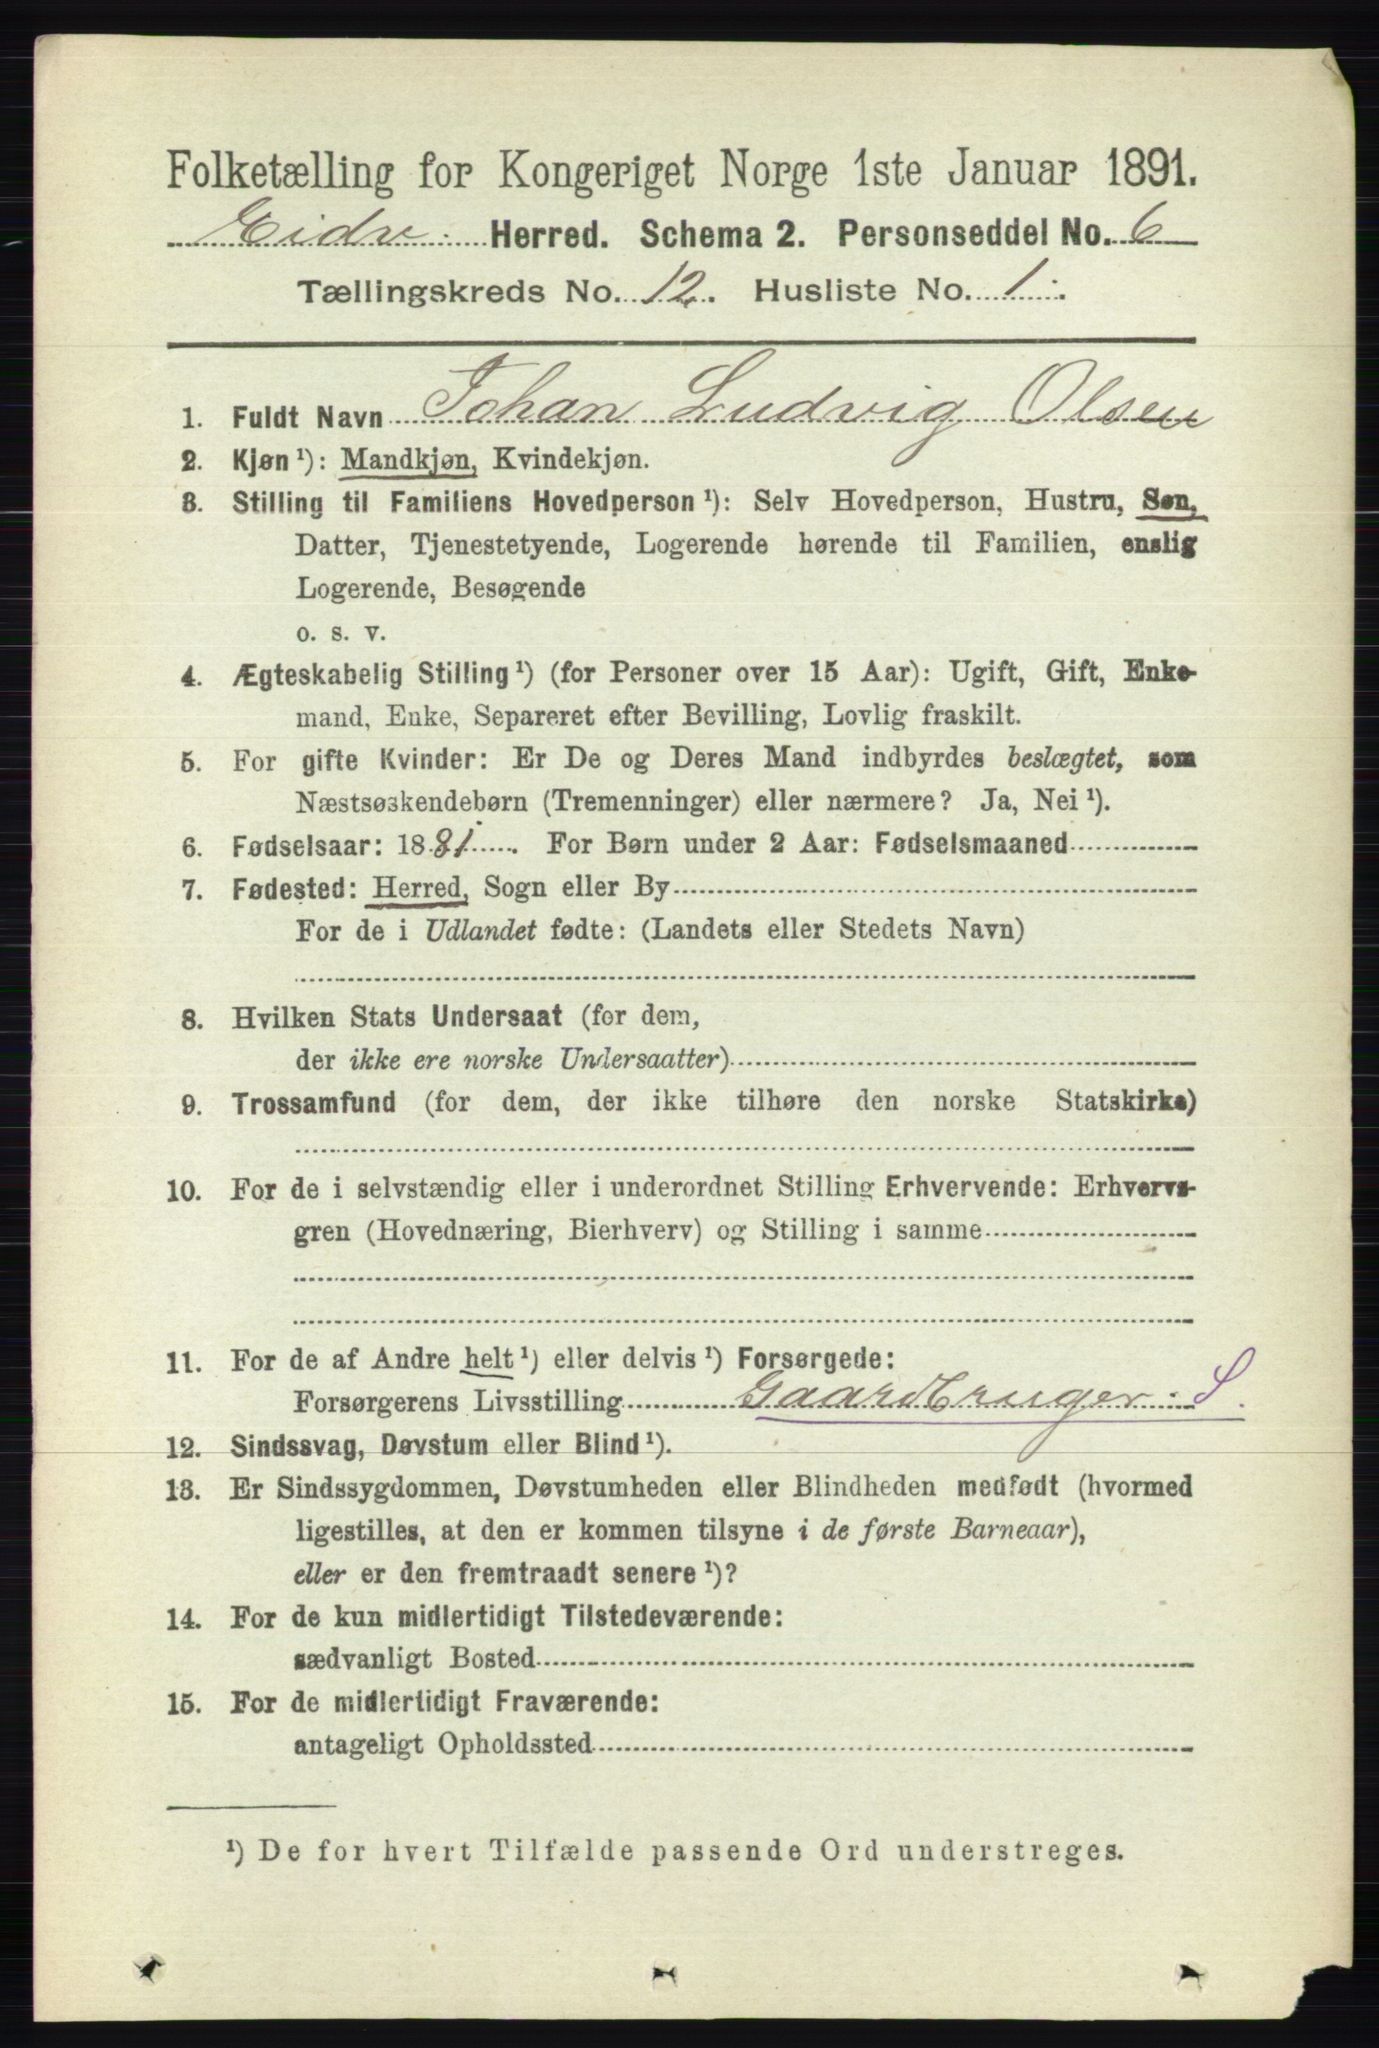 Folketælling for Kongeriget Norge 1ste Januar 1891.
Eidsv. Herred. Schema 2. Personseddel No. 6
Tællingskreds No. 12. Husliste No. 1.
1. Fuldt Navn Johan Ludvig Olsen
2. Kjøn ¹): Mandkjøn, Kvindekjøn.
3. Stilling til Familiens Hovedperson ¹): Selv Hovedperson, Hustru, Søn,
Datter, Tjenestetyende, Logerende hørende til Familien, enslig
Logerende, Besøgende
o. s. v.
4. Ægteskabelig Stilling ¹) (for Personer over 15 Aar): Ugift, Gift, Enke-
mand, Enke, Separeret efter Bevilling, Lovlig fraskilt.
5. For gifte Kvinder: Er De og Deres Mand indbyrdes beslægtet, som
Næstsøskendebørn (Tremenninger) eller nærmere? Ja, Nei ¹).
6. Fødselsaar: 1881. For Børn under 2 Aar: Fødselsmaaned
7. Fødested: Herred, Sogn eller By
For de i Udlandet fødte: (Landets eller Stedets Navn)
8. Hvilken Stats Undersaat (for dem,
der ikke ere norske Undersaatter)
9. Trossamfund (for dem, der ikke tilhøre den norske Statskirke)
10. For de i selvstændig eller i underordnet Stilling Erhvervende: Erhvervs-
gren (Hovednæring, Bierhverv) og Stilling i samme
11. For de af Andre helt ¹) eller delvis ¹) Forsørgede:
Forsørgerens Livsstilling Gaardbruger. S.
12. Sindssvag, Døvstum eller Blind ¹).
13. Er Sindssygdommen, Døvstumheden eller Blindheden medfødt (hvormed
ligestilles, at den er kommen tilsyne i de første Barneaar),
eller er den fremtraadt senere ¹)?
14. For de kun midlertidigt Tilstedeværende:
sædvanligt Bosted
15. For de midlertidigt Fraværende:
antageligt Opholdssted
¹) De for hvert Tilfælde passende Ord understreges.